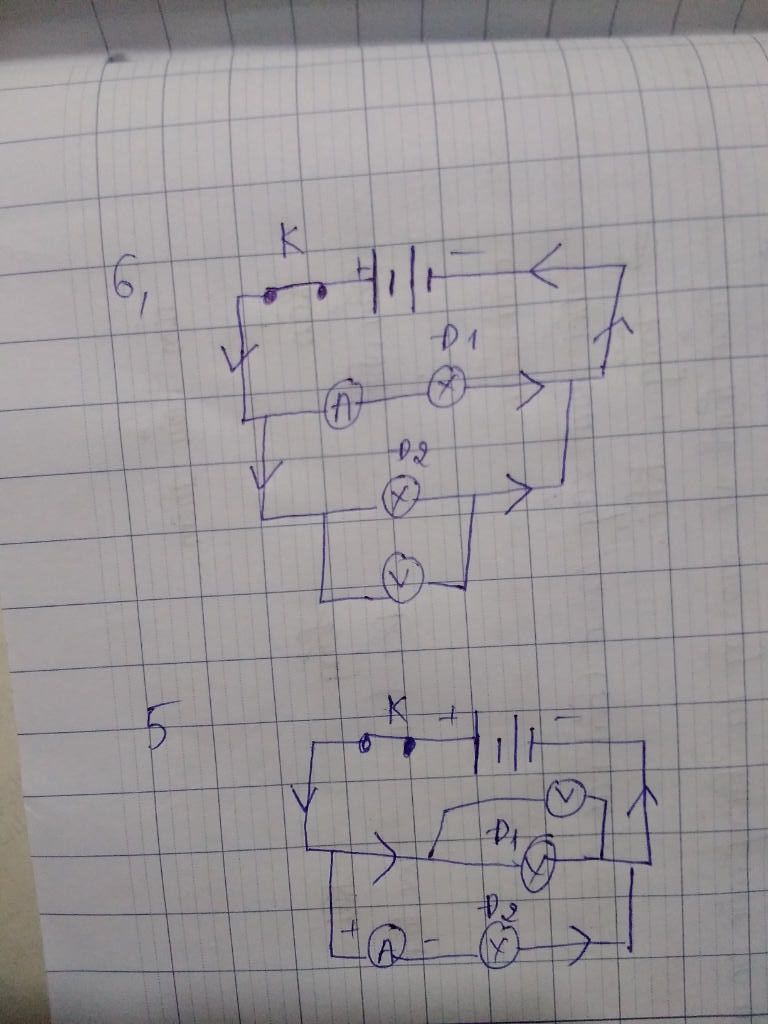 K
6,
+ −
Đ1
A X
Đ2
X
V
5
K + −
V
Đ1
X
Đ2
+ A − X